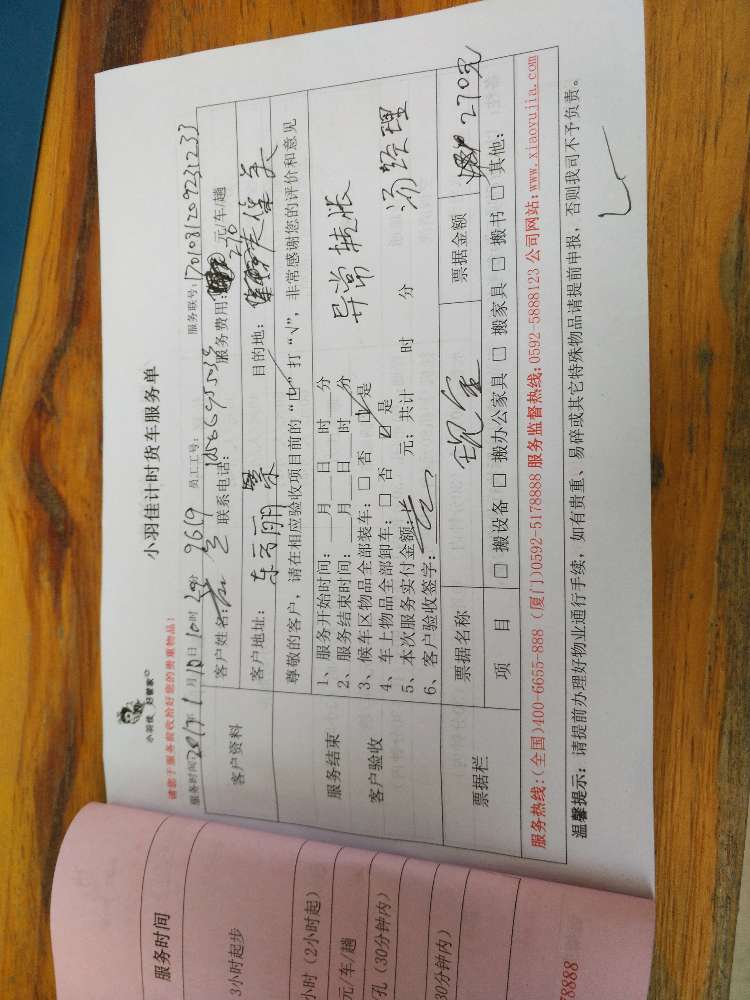 小羽佳 好管家
小羽佳计时货车服务单
请您于服务前收拾好您的贵重物品！
服务时间：2017年1月10日10时 分 员工工号：9619 服务联号：1701081209231233
客户资料
客户姓名： 联系电话： 服务费用： 270元/车/趟
客户地址：东云丽景 目的地：
尊敬的客户，请在相应验收项目前的“□”打“√”，非常感谢您的评价和意见
服务结束
客户验收
1、服务开始时间：____月____日____时____分
2、服务结束时间：____月____日____时____分
3、候车区物品全部装车：□ 否 ☑ 是
4、车上物品全部卸车：□ 否 ☑ 是
5、本次服务实付金额： 元；共计 时 分
6、客户验收签字：
异常转账
汤经理
票据栏
票据名称 现金 票据金额 270元
项 目 □ 搬设备 □ 搬办公家具 □ 搬家具 □ 搬书 □ 其他：
服务热线：(全国)400-6655-888 (厦门)0592-5178888 服务监督热线：0592-5888123 公司网站：www.xiaoyujia.com
温馨提示：请提前办理好物业通行手续，如有贵重、易碎或其它特殊物品请提前申报，否则我司不予负责。
服务时间
3小时起步
小时（2小时起）
元/车/趟
孔（30分钟内）
30分钟内）
8888